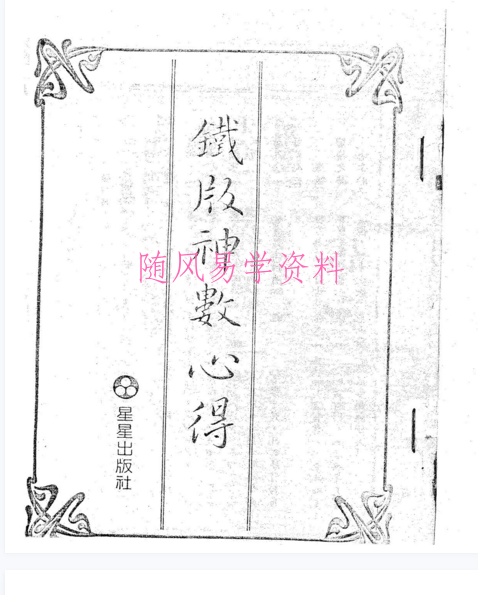 鐵版神數心得
随风易学资料
星星出版社